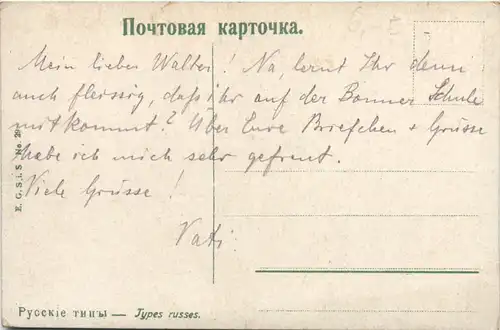 Почтовая карточка.
Mein lieber Walter! Na, lernt Ihr denn
auch fleissig, daß ihr auf der Bonner Schule
mitkommt? Über Eure Briefchen + Grüsse
habe ich mich sehr gefreut.
Viele Grüsse!
Vati.
E. G. S. i. S. No. 29
Русскіе типы — Types russes.